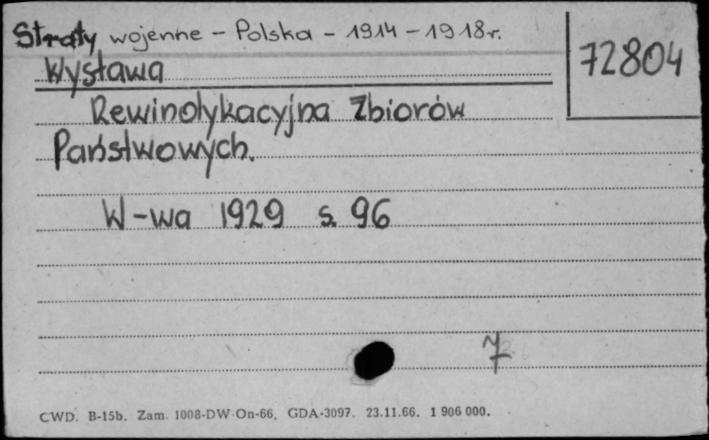 Straty wojenne - Polska - 1914 - 1918r.
72804
Wystawa
Rewindykacyjna Zbiorów
Państwowych.
W-wa 1929 s. 96
7
CWD. B-15b. Zam. 1008-DW-On-66. GDA-3097. 23.11.66. 1 906 000.